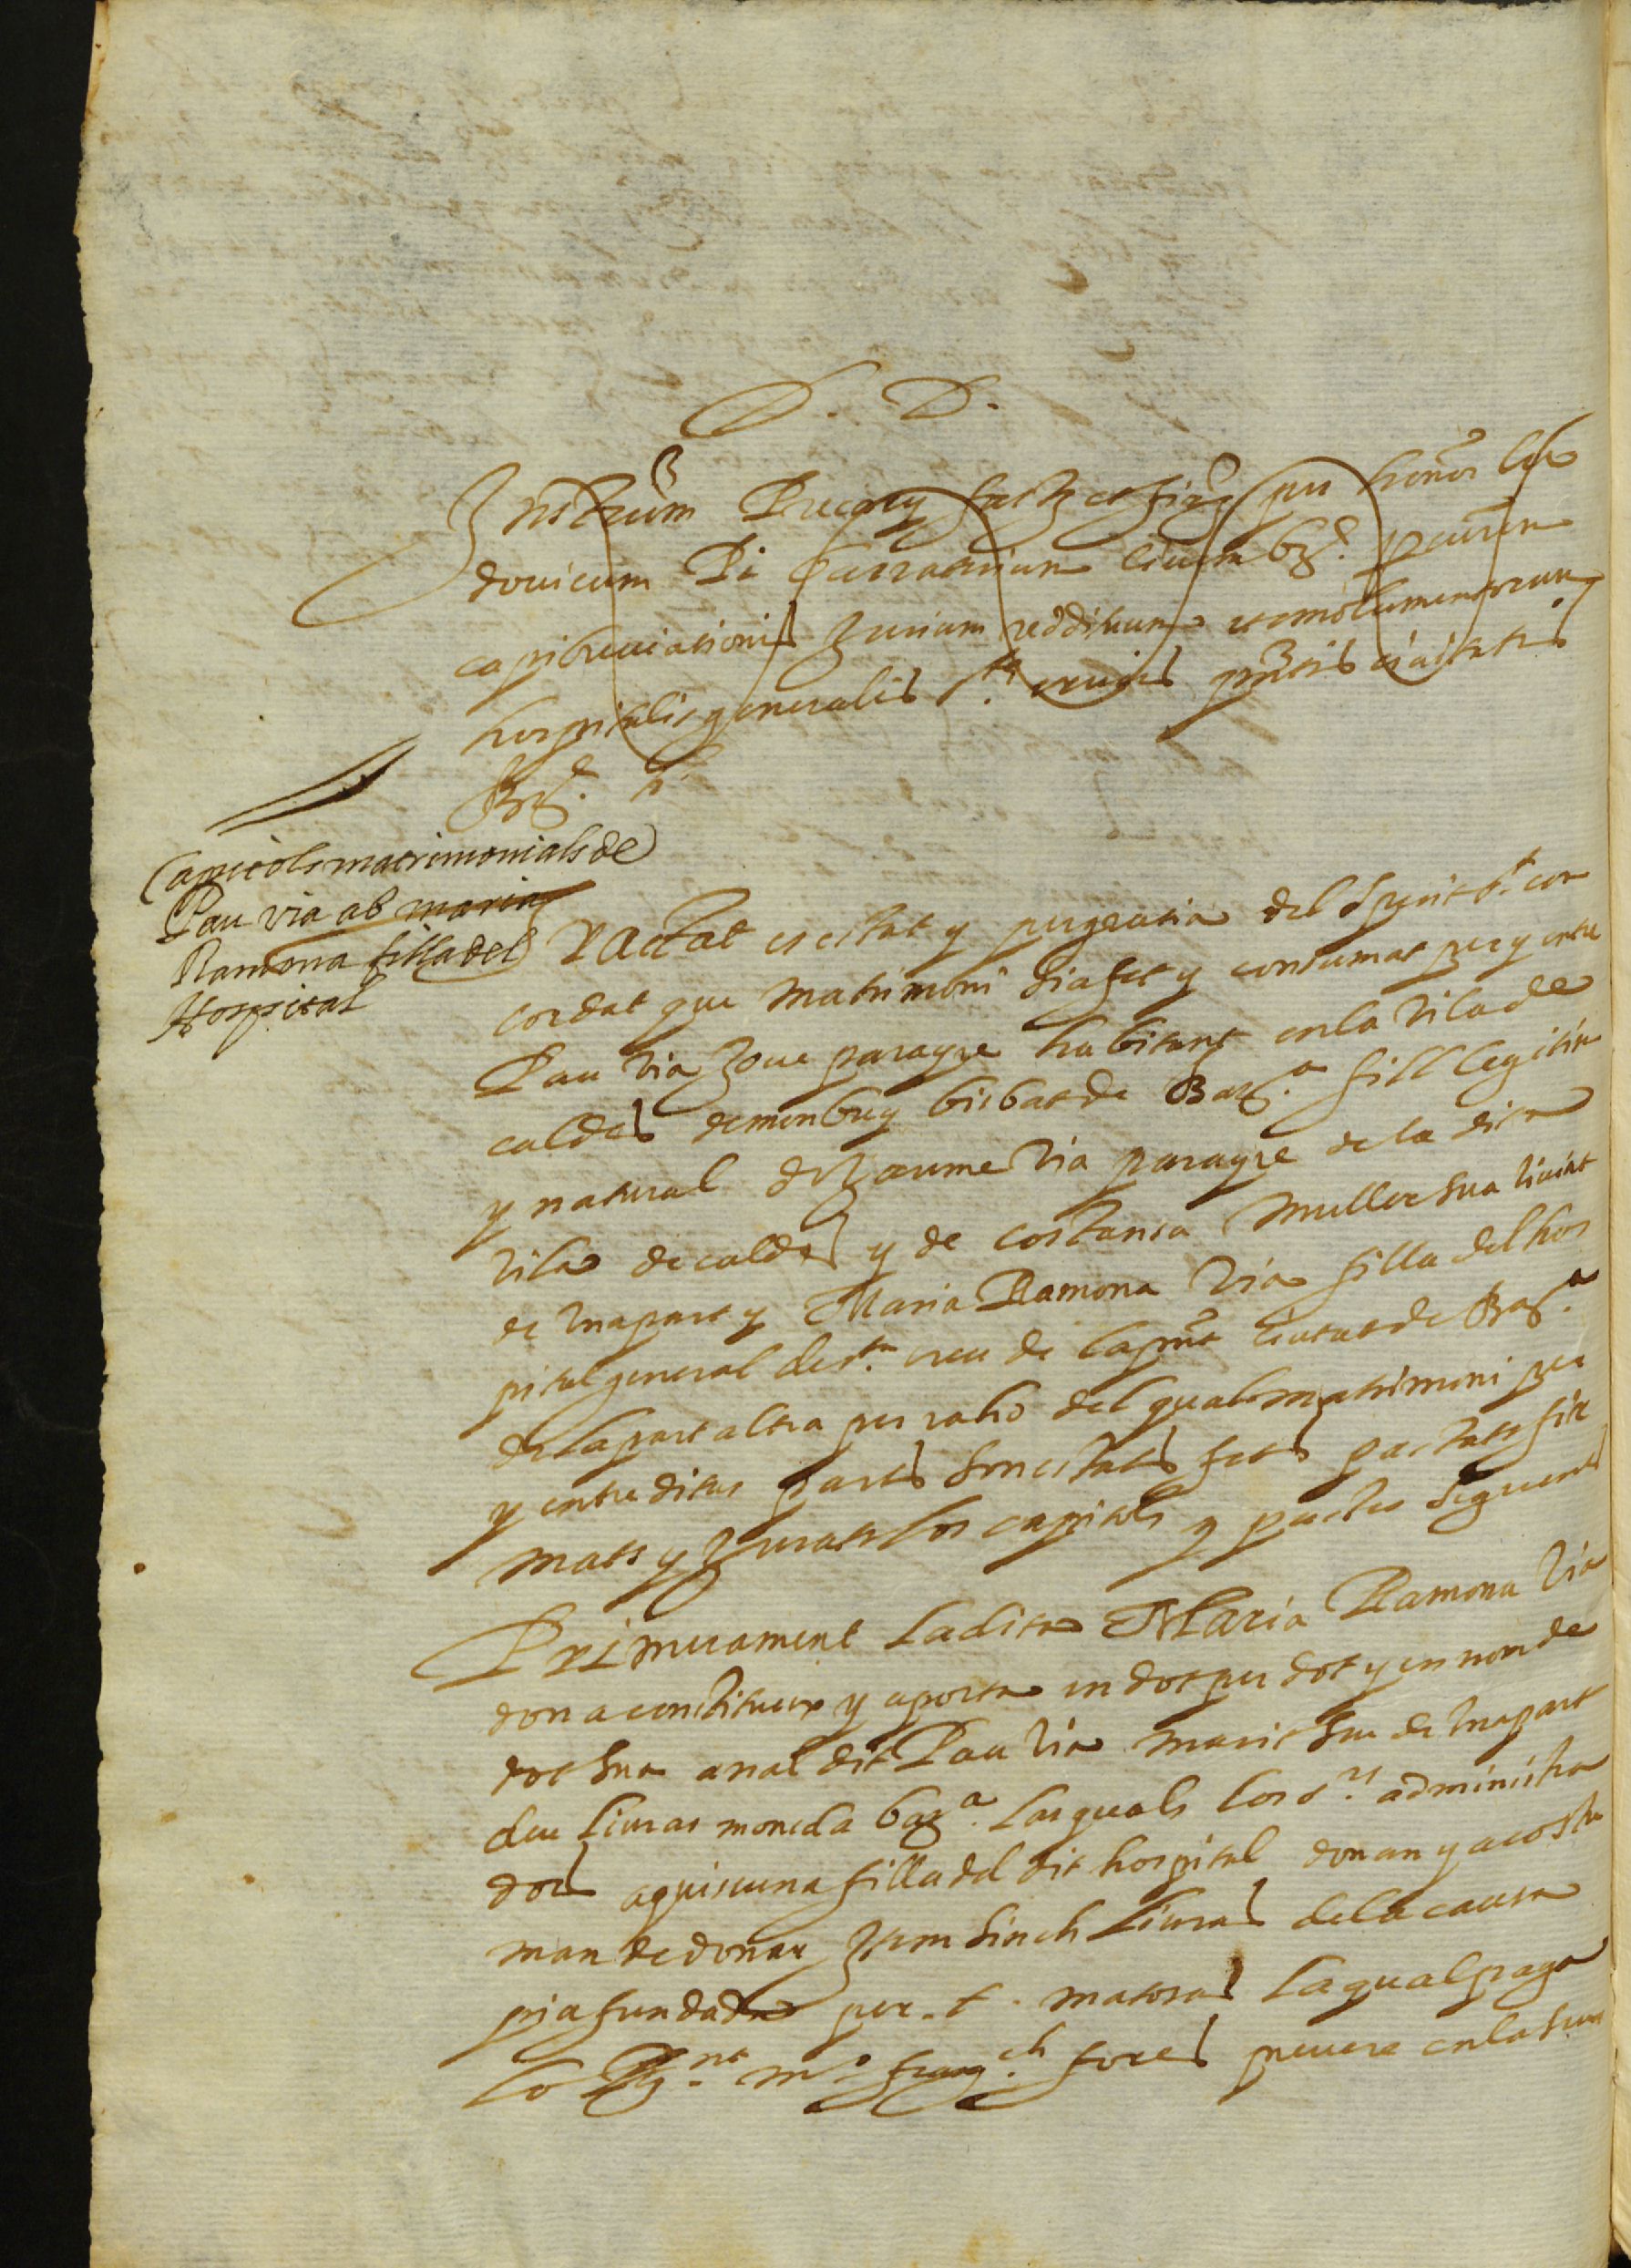 D. D.
Instrum Precarij factz et firm per honor. Lu
dovicum Pi Carratinum civem bar. pcurem
capibreviationis Jurium reddituum et emolumentorum
hospitalis generalis Stæ crucis pntis civitatis
Bar.
Capitols matrimonials de
Pau via ab maria
Ramona filla del
Hospital
Tractat es estat y per gratia del Spirit St. con
cordat que matrimoni sia fet y consumat per y entre
Pau Via Jove parayre habitant en la Vila de
caldes de monbuy bisbat de Bara. fill legitim
y natural de Jaume Via parayre de la dita
Vila de caldes y de costansa Muller sua vivint
de Una part y Maria Ramona Via filla del hos
pital general de sta. creu de la pnt Ciutat de Bara.
de la part altra per raho del qual matrimoni per
y entre ditas parts son estats fets pactats fir
mats y Jurats los capitols y pactes seguents
Primerament La dita Maria Ramona Via
dona constitueix y aporta en dot per dot y en nom de
dot sua anal dit Pau Via marit seu de Una part
deu liuras moneda bara. Las quals los srs. administra
dors a quiscuna filla del dit hospital donan y acostu
man de donar Item sinch Liuras de la causa
pia fundada per .t. matoras La qual paga
lo Rnt. mo. franch. fores prevere en la sum